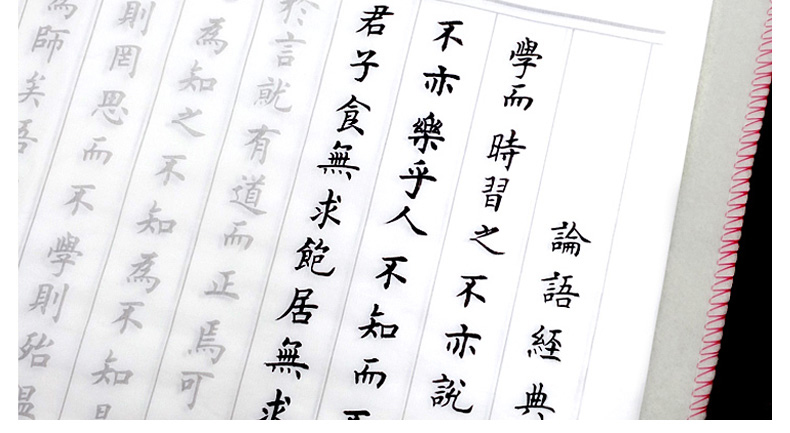 論語經典
學而時習之不亦說
不亦樂乎人不知而不
君子食無求飽居無求
於言就有道而正焉可
為知之不知為不知
則罔思而不學則殆溫
為師矣吾